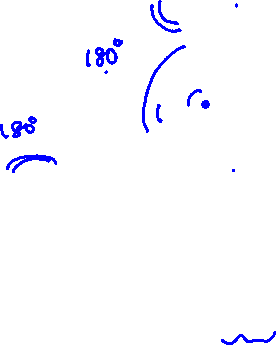 180°
180°